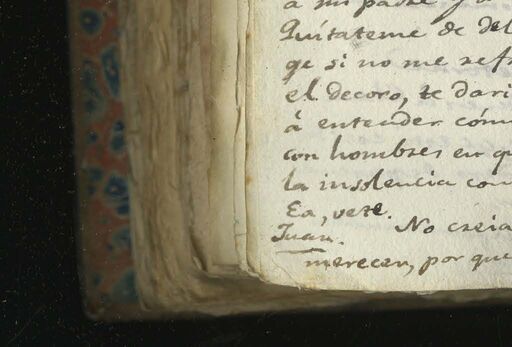 a mi padre y a
Quítateme de del
ge si no me refr
el decoro, te dari
á entender cómo
con hombres en q
la insolencia con
Ea, vete.
Juan. No creia
merecer, por que